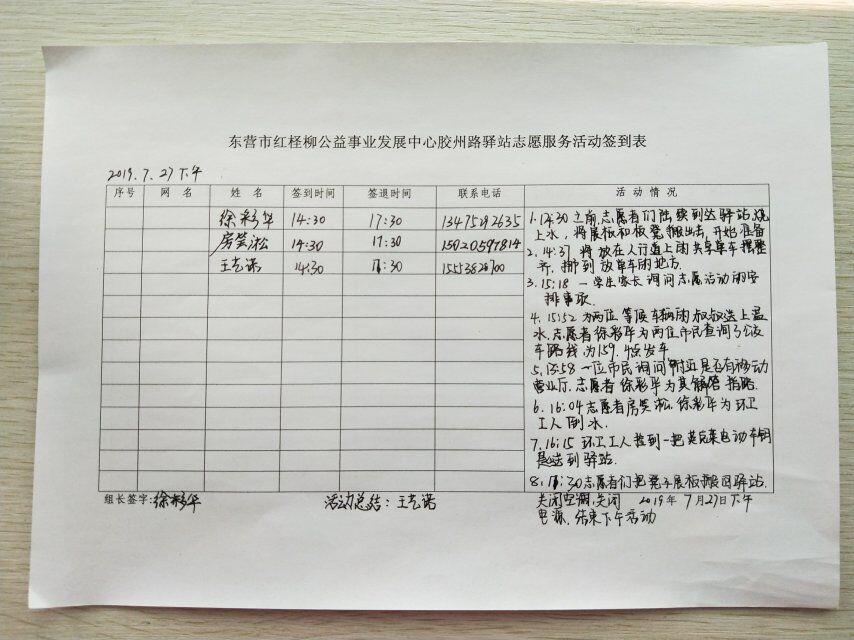 东营市红柽柳公益事业发展中心胶州路驿站志愿服务活动签到表
2019.7.27下午
序号 网 名 姓 名 签到时间 签退时间 联系电话 活 动 情 况
徐彩华 14:30 17:30 13475292635
房笑淞 14:30 17:30 15020597814
王艺诺 14:30 17:30
1.14:30之前,志愿者们陆续到达驿站,烧
上水,将展板和板凳搬出去,开始准备
2.14:37 将放在人行道上的共享单车摆整
齐,挪到放单车的地方.
3.15:18 一学生家长询问志愿活动的安
排事项.
4.15:52 为两位等候车辆的叔叔送上温
水.志愿者徐彩华为两位市民查询了公交
车路线为159.4点发车
5.15:58 一位市民询问附近是否有移动
营业厅.志愿者徐彩华为其解答指路.
6.16:04志愿者房笑淞.徐彩华为环卫
工人倒水.
7.16:15 环卫工人捡到一把电动车钥
匙送到驿站.
8.17:30志愿者们把凳子展板搬回驿站.
关闭空调,关闭
电源.结束下午活动
组长签字:徐彩华 活动总结:王艺诺 2019年7月27日下午